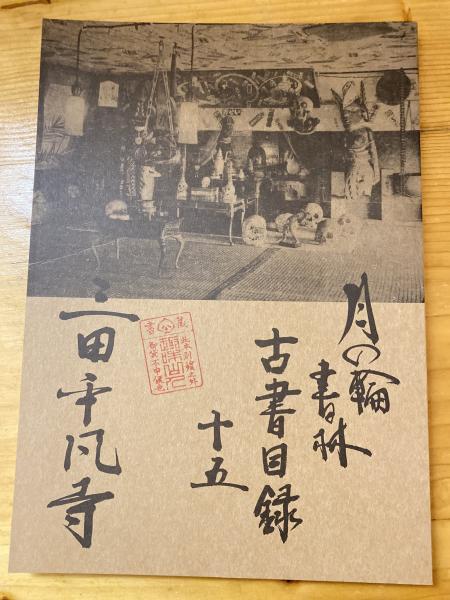 月の輪
書林
古書目録
十五
三田平凡寺